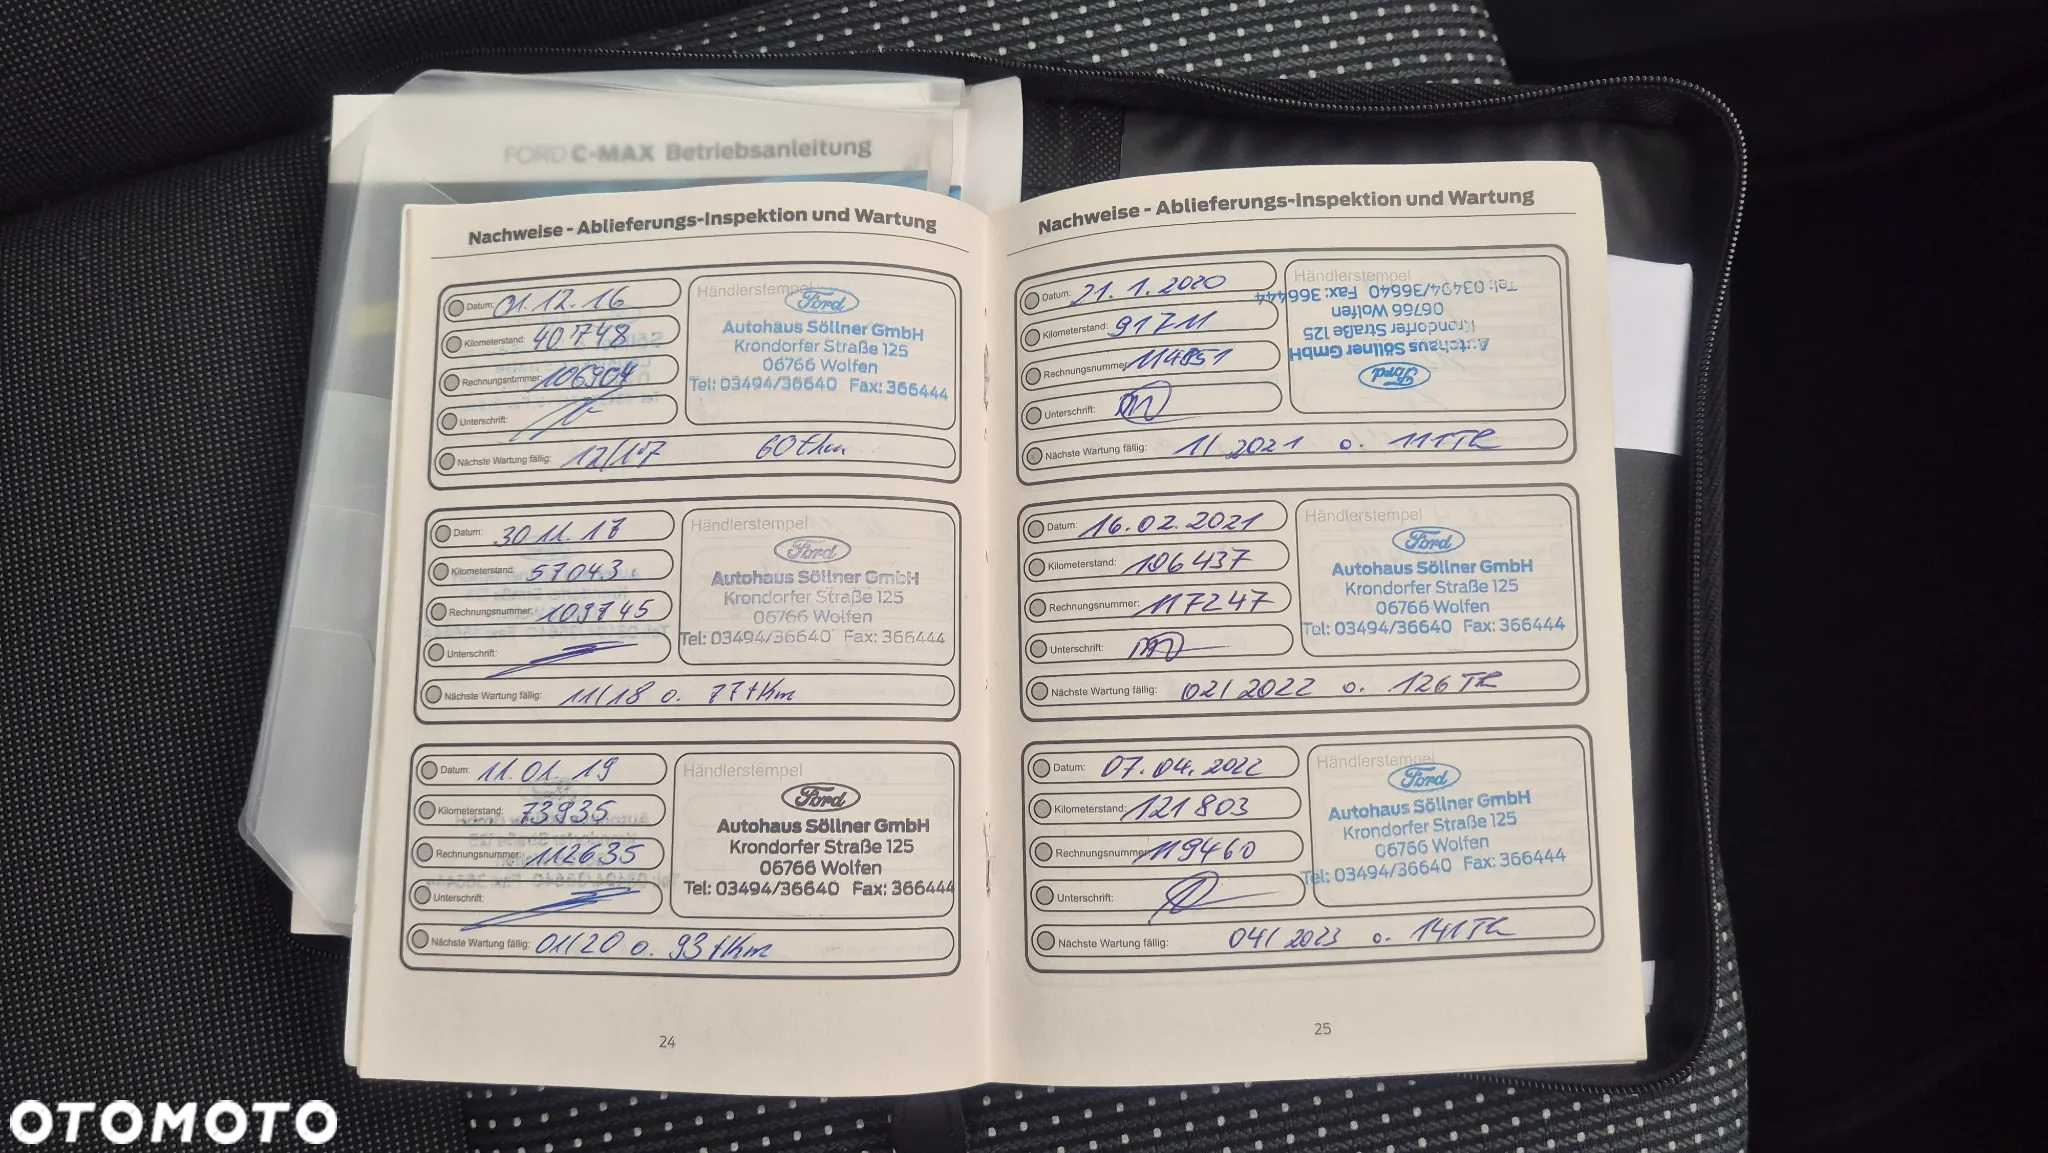 FORD C-MAX Betriebsanleitung
Nachweise - Ablieferungs-Inspektion und Wartung
Datum: 01.12.16
Kilometerstand: 40748
Rechnungsnummer: 106904
Unterschrift:
Nächste Wartung fällig: 12/17 60tkm
Händlerstempel
Ford
Autohaus Söllner GmbH
Krondorfer Straße 125
06766 Wolfen
Tel: 03494/36640 Fax: 366444
Datum: 30.11.17
Kilometerstand: 57043
Rechnungsnummer: 109745
Unterschrift:
Nächste Wartung fällig: 11/18 o. 77tkm
Händlerstempel
Ford
Autohaus Söllner GmbH
Krondorfer Straße 125
06766 Wolfen
Tel: 03494/36640 Fax: 366444
Datum: 11.01.19
Kilometerstand: 73935
Rechnungsnummer: 112635
Unterschrift:
Nächste Wartung fällig: 01/20 o. 93tkm
Händlerstempel
Ford
Autohaus Söllner GmbH
Krondorfer Straße 125
06766 Wolfen
Tel: 03494/36640 Fax: 366444
24
Nachweise - Ablieferungs-Inspektion und Wartung
Datum: 21.1.2020
Kilometerstand: 91711
Rechnungsnummer: 114851
Unterschrift:
Nächste Wartung fällig: 1/2021 o. 111T
Händlerstempel
Ford
Autohaus Söllner GmbH
Krondorfer Straße 125
06766 Wolfen
Tel: 03494/36640 Fax: 366444
Datum: 16.02.2021
Kilometerstand: 106437
Rechnungsnummer: 117247
Unterschrift:
Nächste Wartung fällig: 02/2022 o. 126T
Händlerstempel
Ford
Autohaus Söllner GmbH
Krondorfer Straße 125
06766 Wolfen
Tel: 03494/36640 Fax: 366444
Datum: 07.04.2022
Kilometerstand: 121803
Rechnungsnummer: 119460
Unterschrift:
Nächste Wartung fällig: 04/2023 o. 141T
Händlerstempel
Ford
Autohaus Söllner GmbH
Krondorfer Straße 125
06766 Wolfen
Tel: 03494/36640 Fax: 366444
25
OTOMOTO